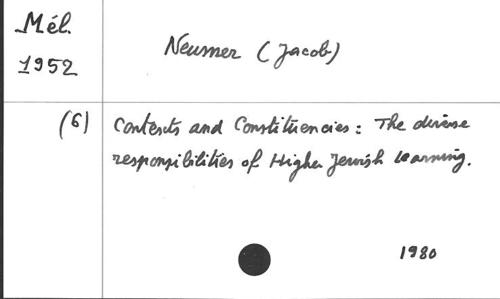 Mél.
1952
Neusner (Jacob)
(6) Contexts and Constituencies: The diverse
responsibilities of Higher Jewish learning.
1980